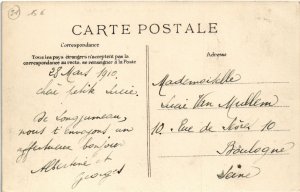 CARTE POSTALE
Correspondance
Tous les pays étrangers n'acceptent pas la
correspondance au recto, se renseigner à la Poste
Adresse
28 Mars 1910,
chère petite Lucie.
De Longjumeau,
nous t'envoyons un
affectueux bonjour.
Albertine et
Georges
Mademoiselle
Lucie Van Mullem
10, Rue de 10
Boulogne
Seine